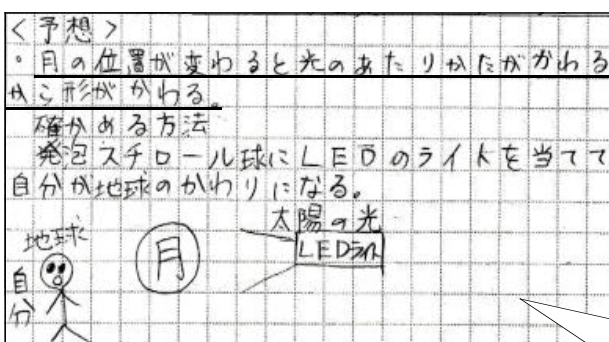 ＜予想＞
・月の位置が変わると光のあたりかたがかわる
から形がかわる。
確かめる方法
発泡スチロール球にLEDのライトを当てて
自分が地球のかわりになる。
太陽の光
地球
月
LEDライト
自分